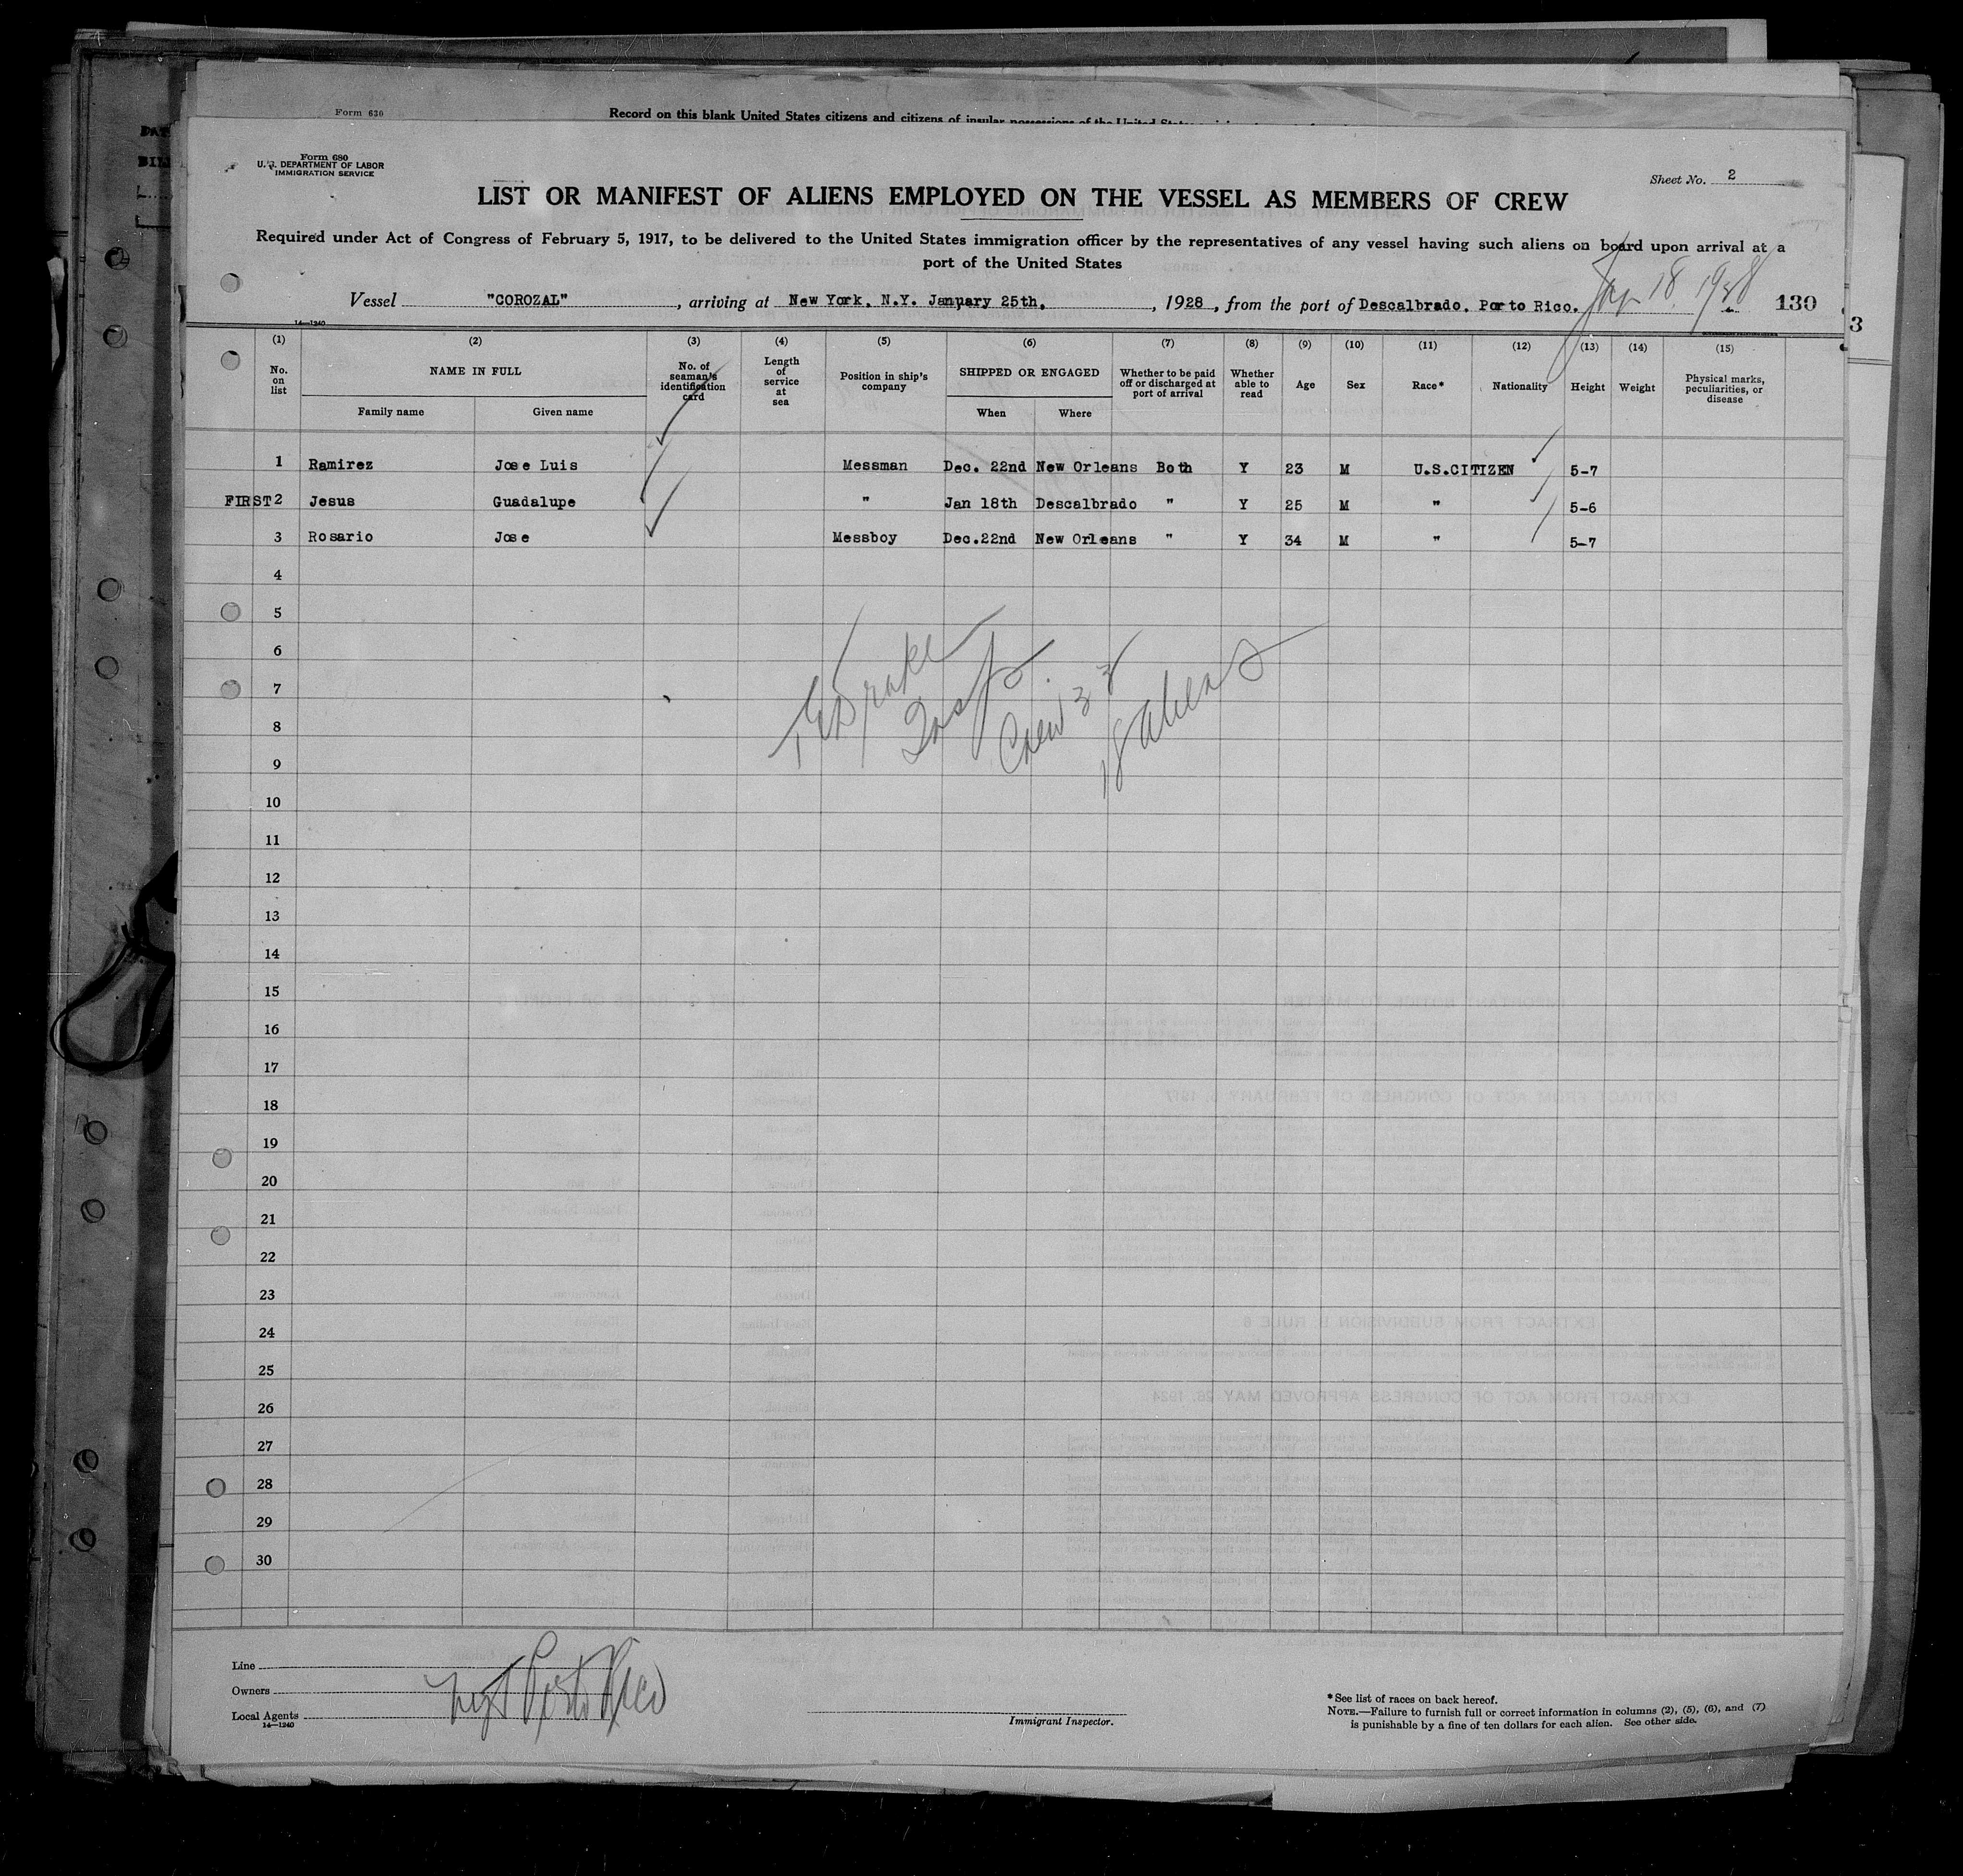 Form 630
Record on this blank United States citizens and citizens of insular possessions of the United
Form 680
U. S. DEPARTMENT OF LABOR
IMMIGRATION SERVICE
Sheet No. 2
LIST OR MANIFEST OF ALIENS EMPLOYED ON THE VESSEL AS MEMBERS OF CREW
Required under Act of Congress of February 5, 1917, to be delivered to the United States immigration officer by the representatives of any vessel having such aliens on board upon arrival at a
port of the United States
Vessel "COROZAL", arriving at New York, N.Y. January 25th, , 1928, from the port of Descalbrado, Porto Rico. Jan 18 1928 130
3
14—1240
(1) (2) (3) (4) (5) (6) (7) (8) (9) (10) (11) (12) (13) (14) (15)
No. on list
NAME IN FULL
Family name
Given name
No. of seaman's identification card
Length of service at sea
Position in ship's company
SHIPPED OR ENGAGED
When
Where
Whether to be paid off or discharged at port of arrival
Whether able to read
Age
Sex
Race*
Nationality
Height
Weight
Physical marks, peculiarities, or disease
1 Ramirez Jose Luis Messman Dec. 22nd New Orleans Both Y 23 M U.S.CITIZEN 5-7
FIRST 2 Jesus Guadalupe " Jan 18th Descalbrado " Y 25 M " 5-6
3 Rosario Jose Messboy Dec.22nd New Orleans " Y 34 M " 5-7
4
5
6
7
8
9
10
11
12
13
14
15
16
17
18
19
20
21
22
23
24
25
26
27
28
29
30
Drake
Insp.
Crew 33
18 aliens
Line
Owners
Local Agents
14—1240
NY & Porto Rico
Immigrant Inspector.
*See list of races on back hereof.
NOTE.—Failure to furnish full or correct information in columns (2), (5), (6), and (7)
is punishable by a fine of ten dollars for each alien. See other side.